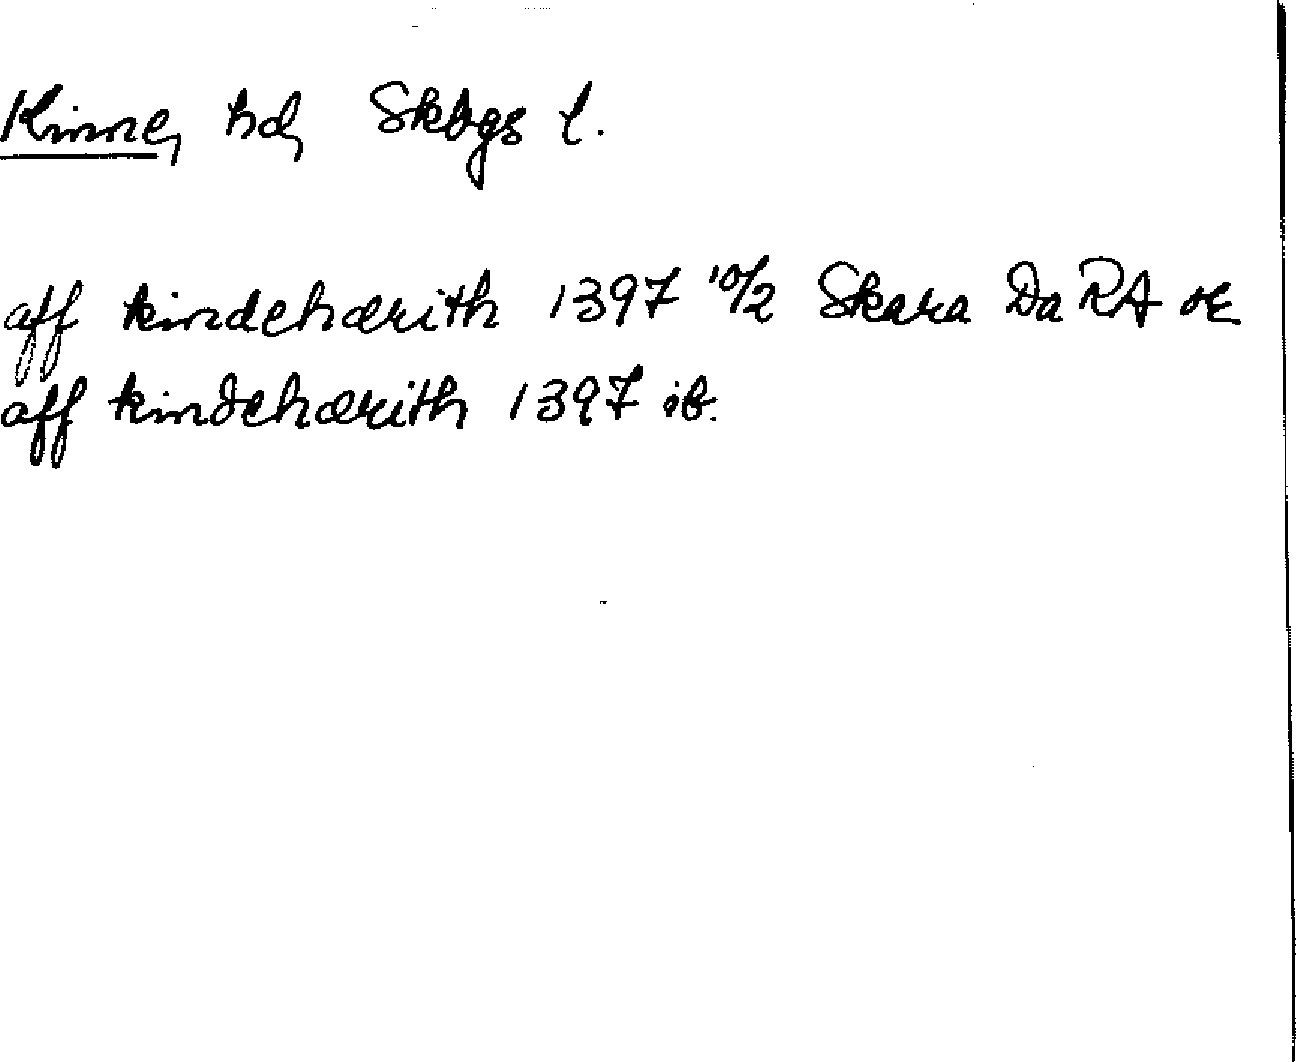 Kinne, hd, Skbgs l.
aff kindehærith 1397 10/2 Skara Da RA or
aff kindehærith 1397 ib.